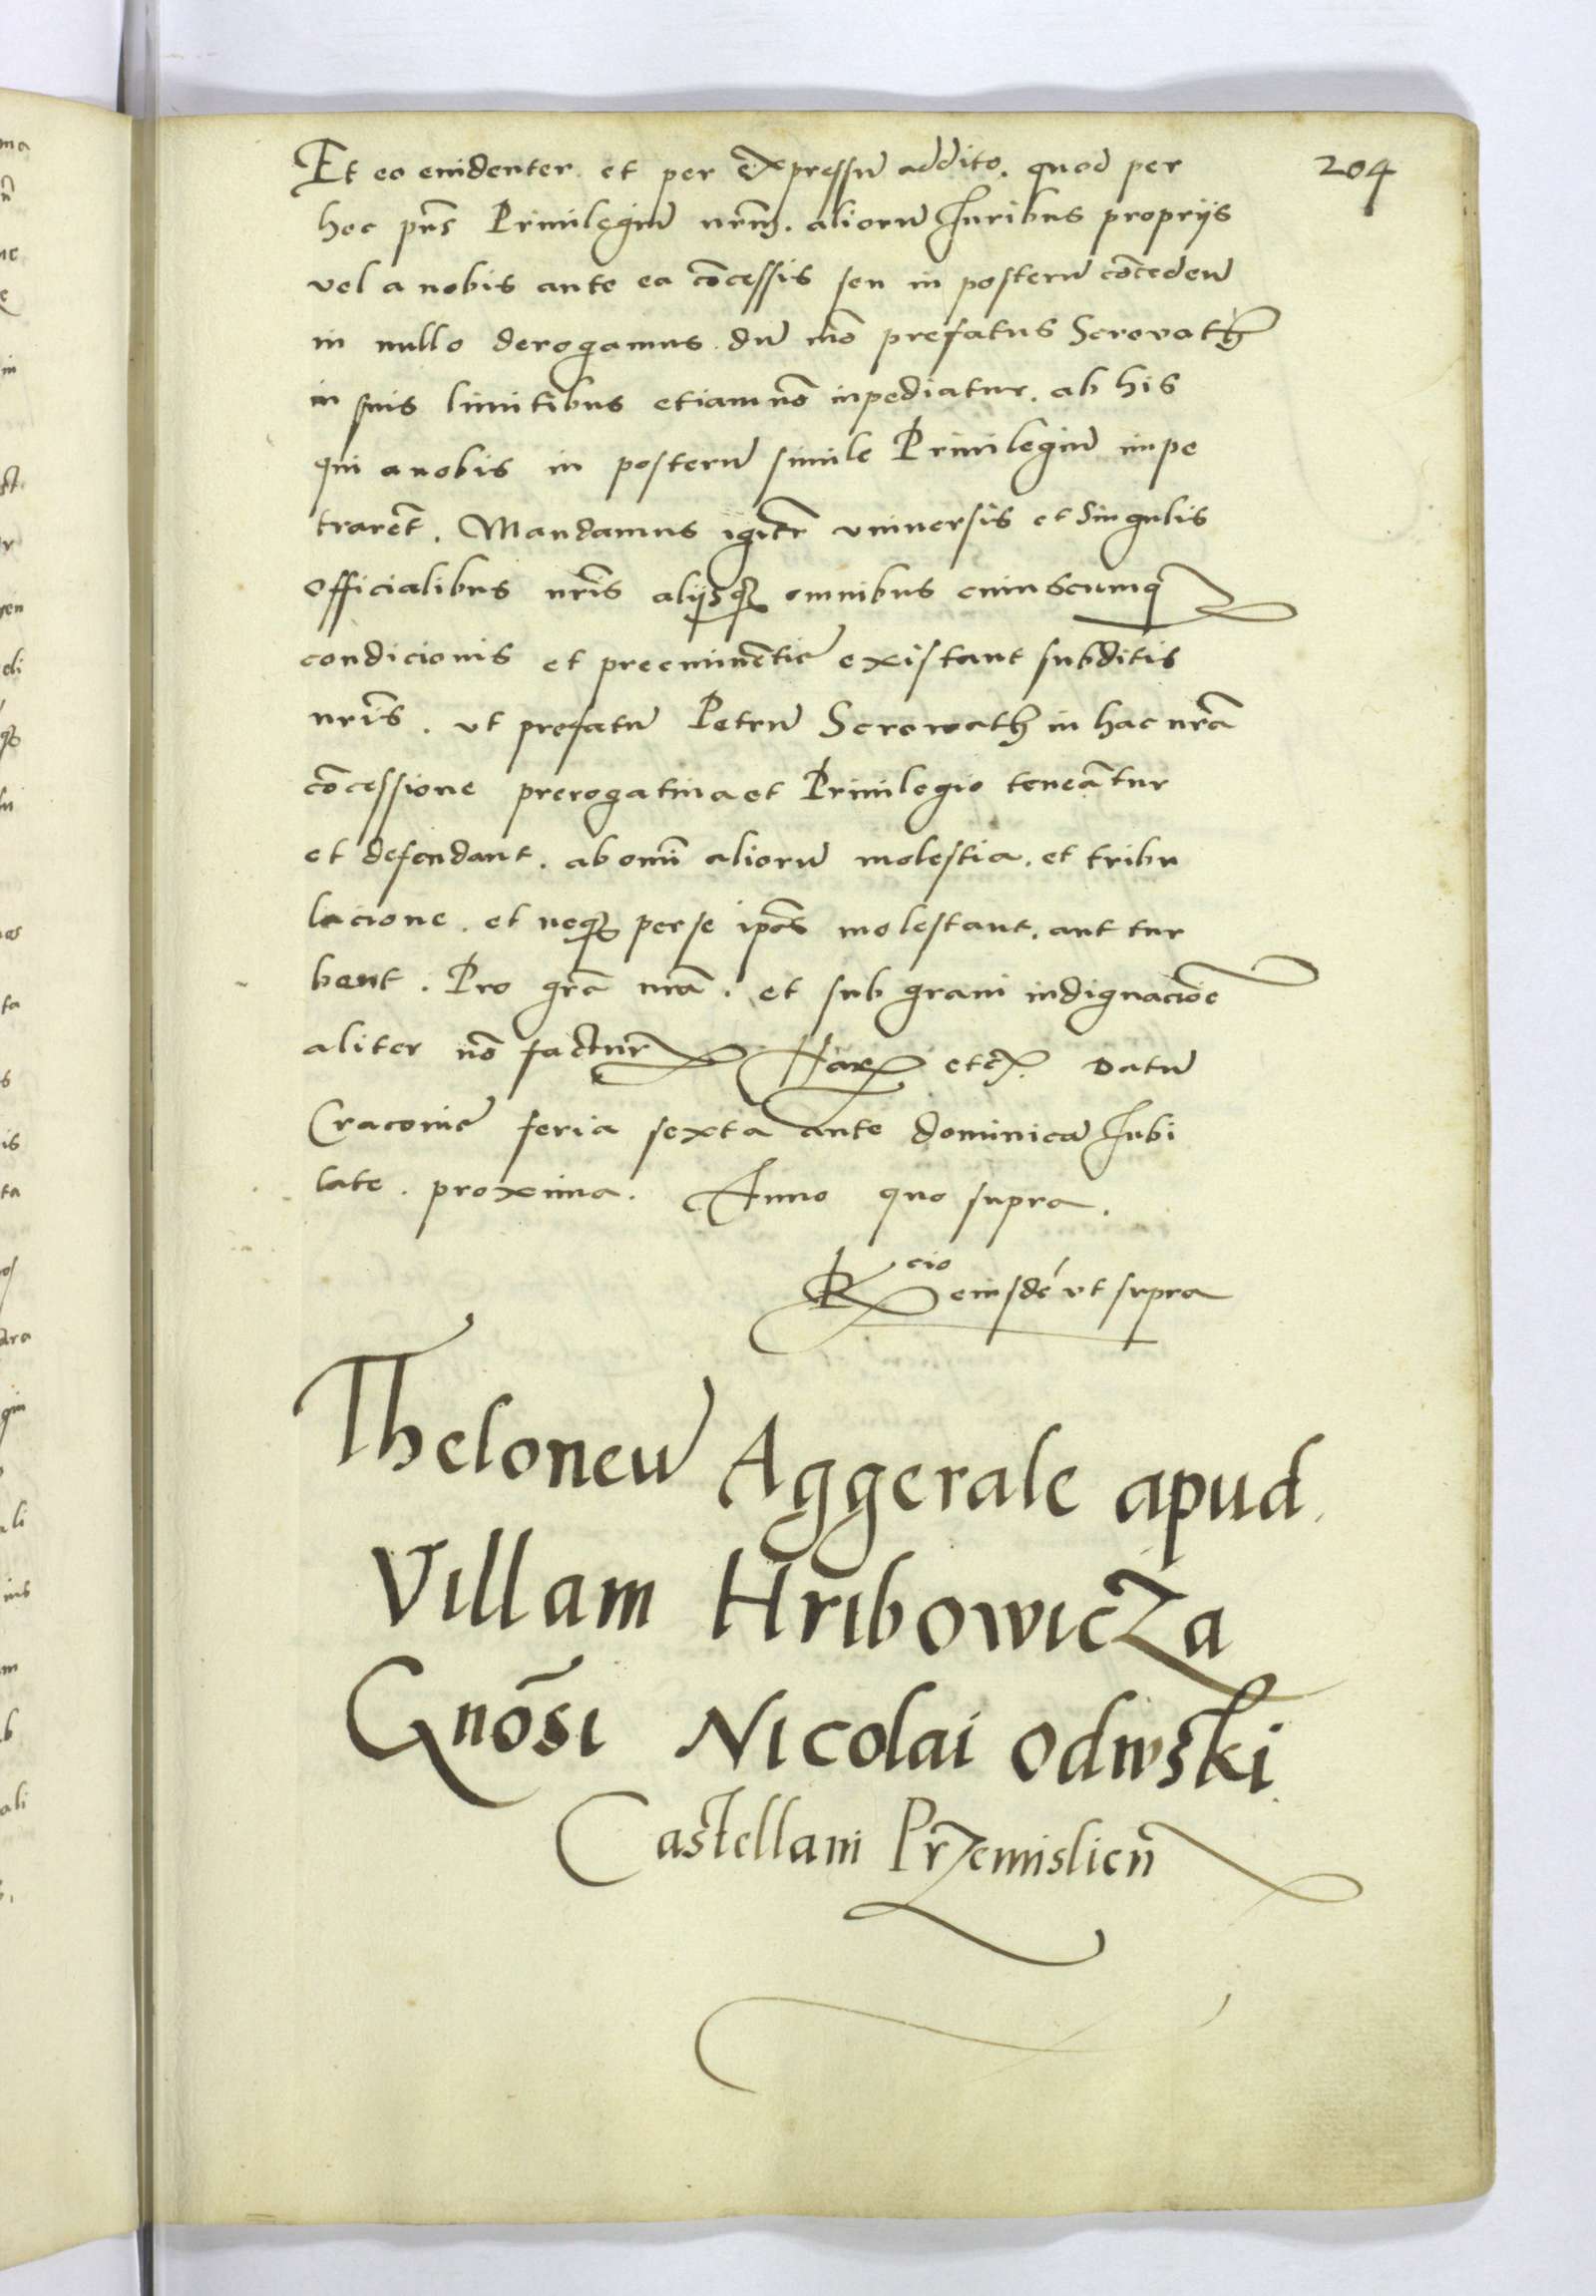 Et eo euidenter et per expressū addito. quod per
204
hoc prñs Priuilegiū nrm̄. aliorū Iuribus proprijs
vel a nobis ante ea cōcessis seu in posterū cōcedeñ
in nullo derogamus dū mō prefatus Scrovath
in suis limitibus etiam nō inpediatur. ab his
qui a nobis in posterū simile Priuilegiū impe
trarēt. Mandamus igitr̄ vniuersis et singulis
officialibus nrīs alijsq3 omnibus cuiuscumq
condicionis et preeminētie existant subditis
nrīs. vt prefatū Petrū Scrowath in hac nrā
cōcessione prerogatiua et Priuilegio teneātur
et defendant. ab omī aliorū molestia. et tribu
lacione. et neq3 per se ipōs molestant. aut tur
bent. Pro grā nrā. et sub graui indignacōe
aliter nō factur̄ Harx etcz. Datū
Cracouie feria sexta ante dominicā Iubi
late. proxima. Anno quo supra.
Rcio eiusdē vt supra
Theloneū Aggerale apud
Villam Hribowicza
Gnōsi Nicolai Odwski
Castellani Przemislień